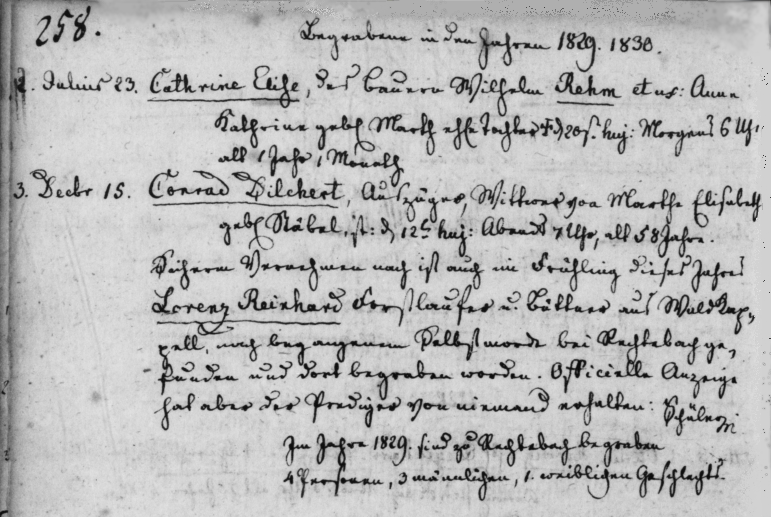 258.
Begrabene in den Jahren 1829. 1830.
2. Julius 23. Cathrine Elise, des Bauern Wilhelm Rehm et ux: Anne
Kathrine geb. Marth ehl. Tochter † d. 20. huj: Morgens 6 Uhr
alt 1 Jahr 1 Monath
3. Decbr 15. Conrad Dilchert, Auszüger, Wittwer von Marthe Elisabeth
geb. Stöbel, st: d. 12t. huj: Abends 7 Uhr, alt 58 Jahre.
Sicherm Vernehmen nach ist auch im Frühling dieses Jahres
Lorenz Reinhard Forstlaufer u. Büttner aus Waldkap,,
pell, nach begangenem Selbstmorde bei Rechtebach ge,,
funden und dort begraben worden. Officielle Anzeige
hat aber der Prediger von niemand erhalten: Schüler
Im Jahre 1829. sind zu Rechtebach begraben
4 Personen, 3 männlichen, 1. weiblichen Geschlechts.